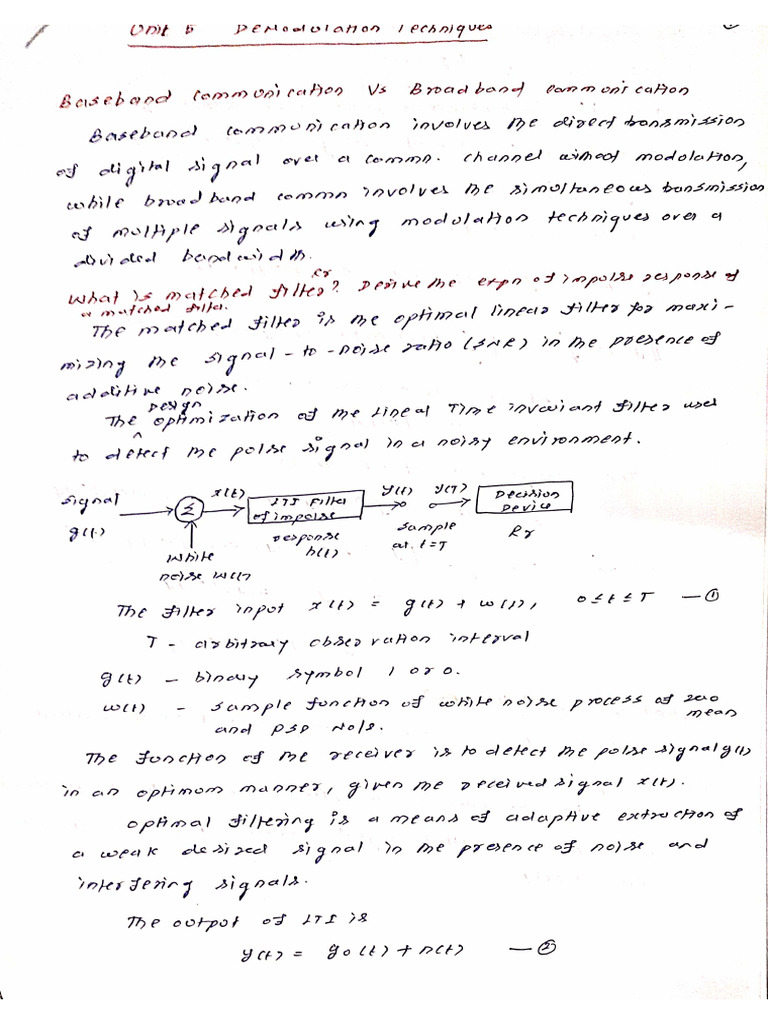 Unit 5 Demodulation Techniques
Baseband communication Vs Broadband communication
Baseband communication involves the direct transmission
of digital signal over a commn. channel without modulation,
while broadband commn involves the simultaneous transmission
of multiple signals using modulation techniques over a
divided bandwidth.
What is matched filter? Derive the expn of impulse response of
a matched filter.
The matched filter is the optimal linear filter for maxi-
mizing the signal-to-noise ratio (SNR) in the presence of
additive noise.
Design
The optimization of the Linear Time invariant filter uses
to detect the pulse signal in a noisy environment.
signal
g(t)
Σ
x(t)
LTI filter
of impulse
response
h(t)
y(t)
y(T)
sample
at t=T
Decision
Device
White
noise w(t)
The filter input x(t) = g(t) + w(t), 0≤t≤T —①
T - arbitrary observation interval
g(t) - binary symbol 1 or 0.
w(t) - sample function of white noise process of zero
mean
and PSD No/2.
The function of the receiver is to detect the pulse signal g(t)
in an optimum manner, given the received signal x(t).
optimal filtering is a means of adaptive extraction of
a weak desired signal in the presence of noise and
interfering signals.
The output of LTI is
y(t) = go(t) + n(t) —②